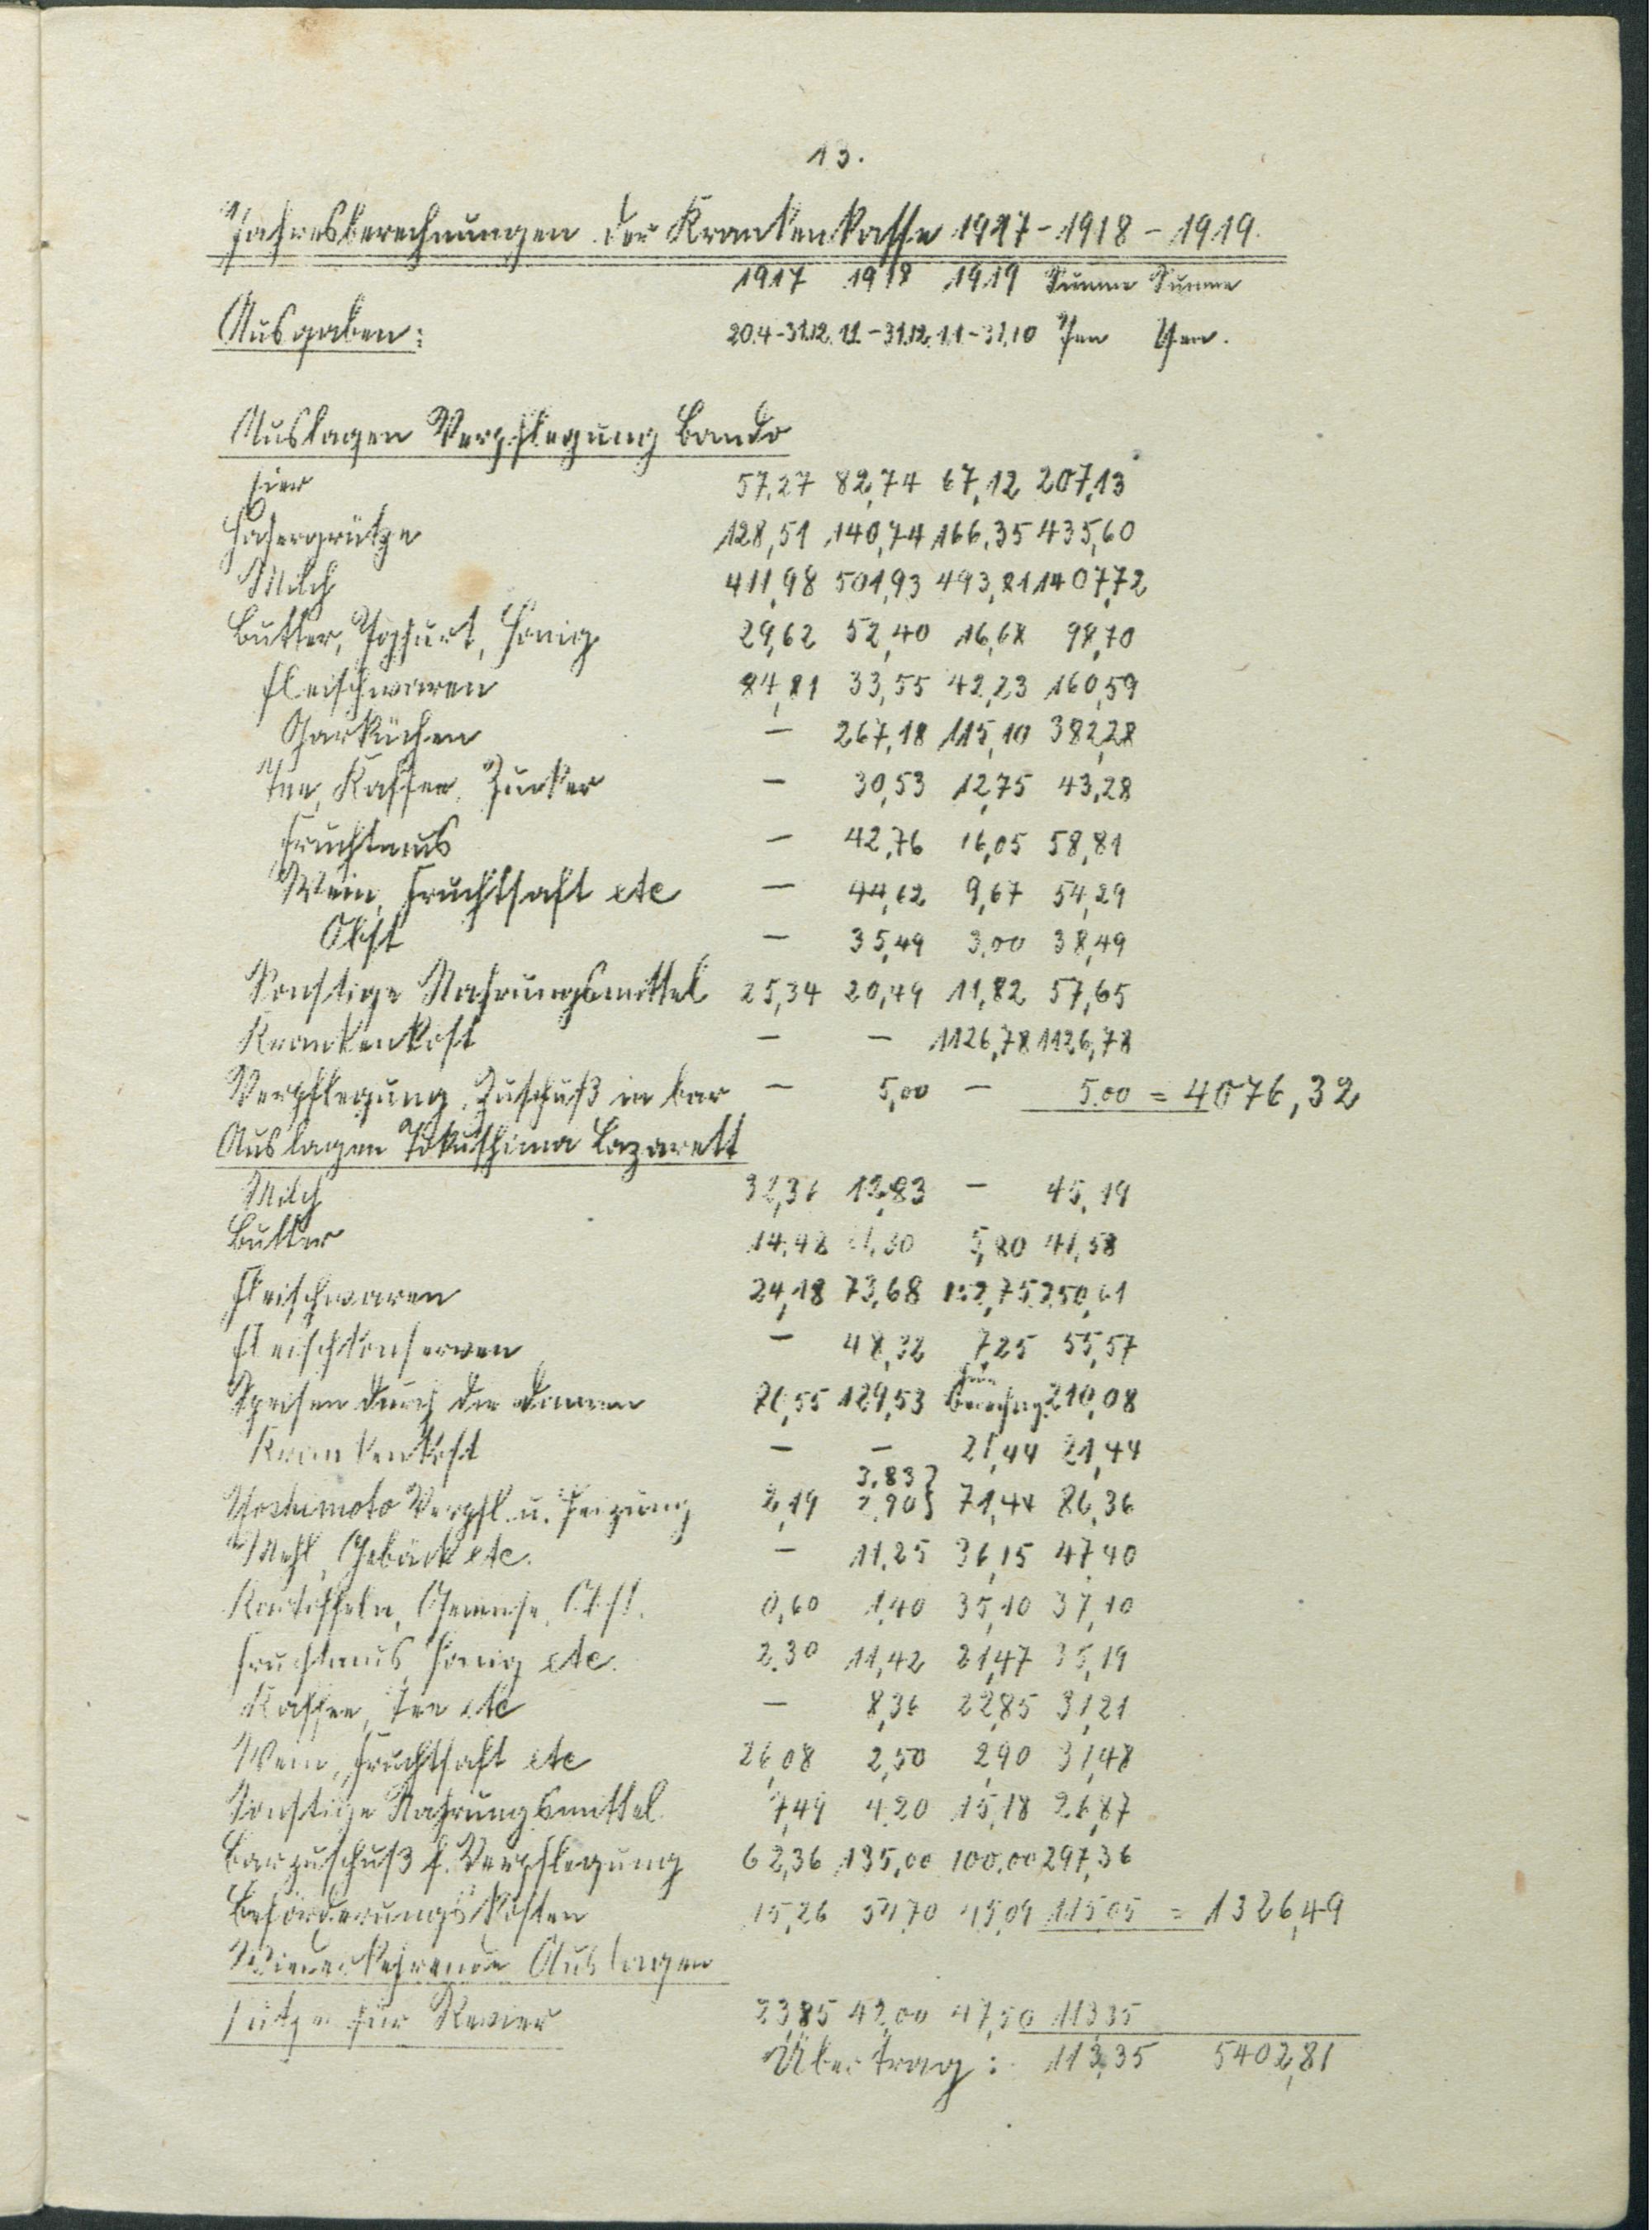 13.
Jahresberechnungen der Krankenkasse 1917-1918-1919.
1917 1918 1919 Summe Summe
Ausgaben: 20.4-31.12. 1.1-31.12. 1.1-31.10 Yen Yen.
Auslagen Verpflegung Bando
Eier 57,27 82,74 67,12 207,13
Hafergrütze 128,51 140,74 166,35 435,60
Milch 411,98 501,93 493,81 1407,72
Butter, Yoghurt, Honig 29,62 52,40 16,68 98,70
Fleischwaren 84,81 33,55 42,23 160,59
Garküchen — 267,18 115,10 382,28
Tee, Kaffee, Zucker — 30,53 12,75 43,28
Fruchtmus — 42,76 16,05 58,81
Wein, Fruchtsaft etc — 44,62 9,67 54,29
Obst — 35,49 3,00 38,49
Sonstige Nahrungsmittel 25,34 20,49 11,82 57,65
Krankenkost — — 1126,78 1126,78
Verpflegung, Zuschuß in bar — 5,00 — 5.00 = 4076,32
Auslagen Tokushima Lazarett
Milch 32,36 12,83 — 45,19
Butter 14,48 21,30 5,80 41,58
Fleischwaren 24,18 73,68 152,75 250,61
Fleischkonserven — 48,32 7,25 55,57
Speisen durch die 80,55 129,53 210,08
Krankenkost — — 21,44 21,44
3,83}
Yoshimoto Verpfl. u. Heizung 8,19 2,90} 71,44 86,36
Mehl, Gebäck etc. — 11,25 36,15 47,40
Kartoffeln, Gemüse, Obst. 0,60 1,40 35,10 37,10
Fruchtmus, Honig etc. 2,30 11,42 21,47 35,19
Kaffee, Tee etc — 8,36 22,85 31,21
Wein, Fruchtsaft etc 26,08 2,50 2,90 31,48
Sonstige Nahrungsmittel 7,49 4,20 15,18 26,87
Barzuschuß f. Verpflegung 62,36 135,00 100,00 297,36
Beförderungs Kosten 15,26 54,70 45,09 115,05 = 1326,49
Wiederkehrende Auslagen
für Revier 23,85 42,00 47,50 113,35
Übertrag: 113,35 5402,81